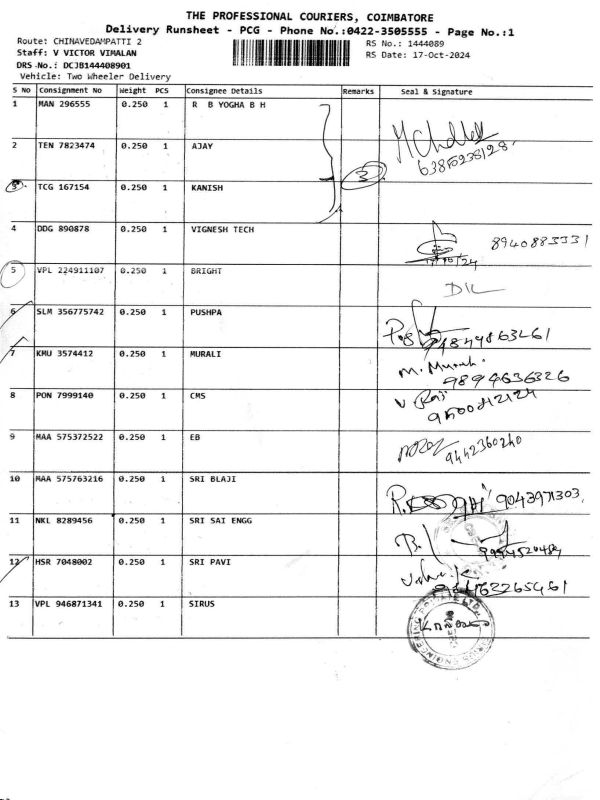 THE PROFESSIONAL COURIERS, COIMBATORE
Delivery Runsheet - PCG - Phone No.:0422-3505555 - Page No.:1
Route: CHINAVEDAMPATTI 2
RS No.: 1444089
Staff: V VICTOR VIMALAN
RS Date: 17-Oct-2024
DRS No.: DCJB144408901
Vehicle: Two Wheeler Delivery
S No Consignment No Weight PCS Consignee Details Remarks Seal & Signature
1 MAN 296555 0.250 1 R B YOGHA B H
2 TEN 7823474 0.250 1 AJAY
3 TCG 167154 0.250 1 KANISH 3
4 DDG 890878 0.250 1 VIGNESH TECH 8940883331
5 VPL 224911107 0.250 1 BRIGHT DIL
6 SLM 356775742 0.250 1 PUSHPA
7 KMU 3574412 0.250 1 MURALI 9894636326
8 PON 7999140 0.250 1 CMS V Raji
9 MAA 575372522 0.250 1 EB 9442360240
10 MAA 575763216 0.250 1 SRI BLAJI 9043971303
11 NKL 8289456 0.250 1 SRI SAI ENGG
12 HSR 7048002 0.250 1 SRI PAVI
13 VPL 946871341 0.250 1 SIRUS